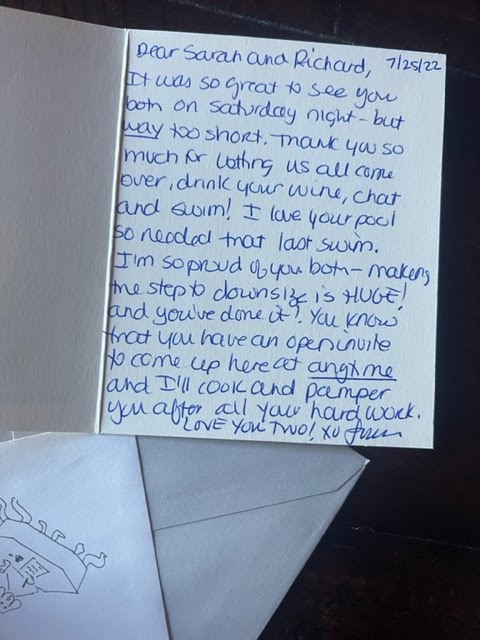 Dear Sarah and Richard, 7/25/22
It was so great to see you
both on Saturday night - but
way too short. Thank you so
much for letting us all come
over, drink your wine, chat
and swim! I love your pool
so needed that last swim.
I'm so proud of you both - making
the step to downsize is HUGE!
and you've done it! You know
that you have an open invite
to come up here at anytime
and I'll cook and pamper
you after all your hard work.
LOVE YOU TWO! XO